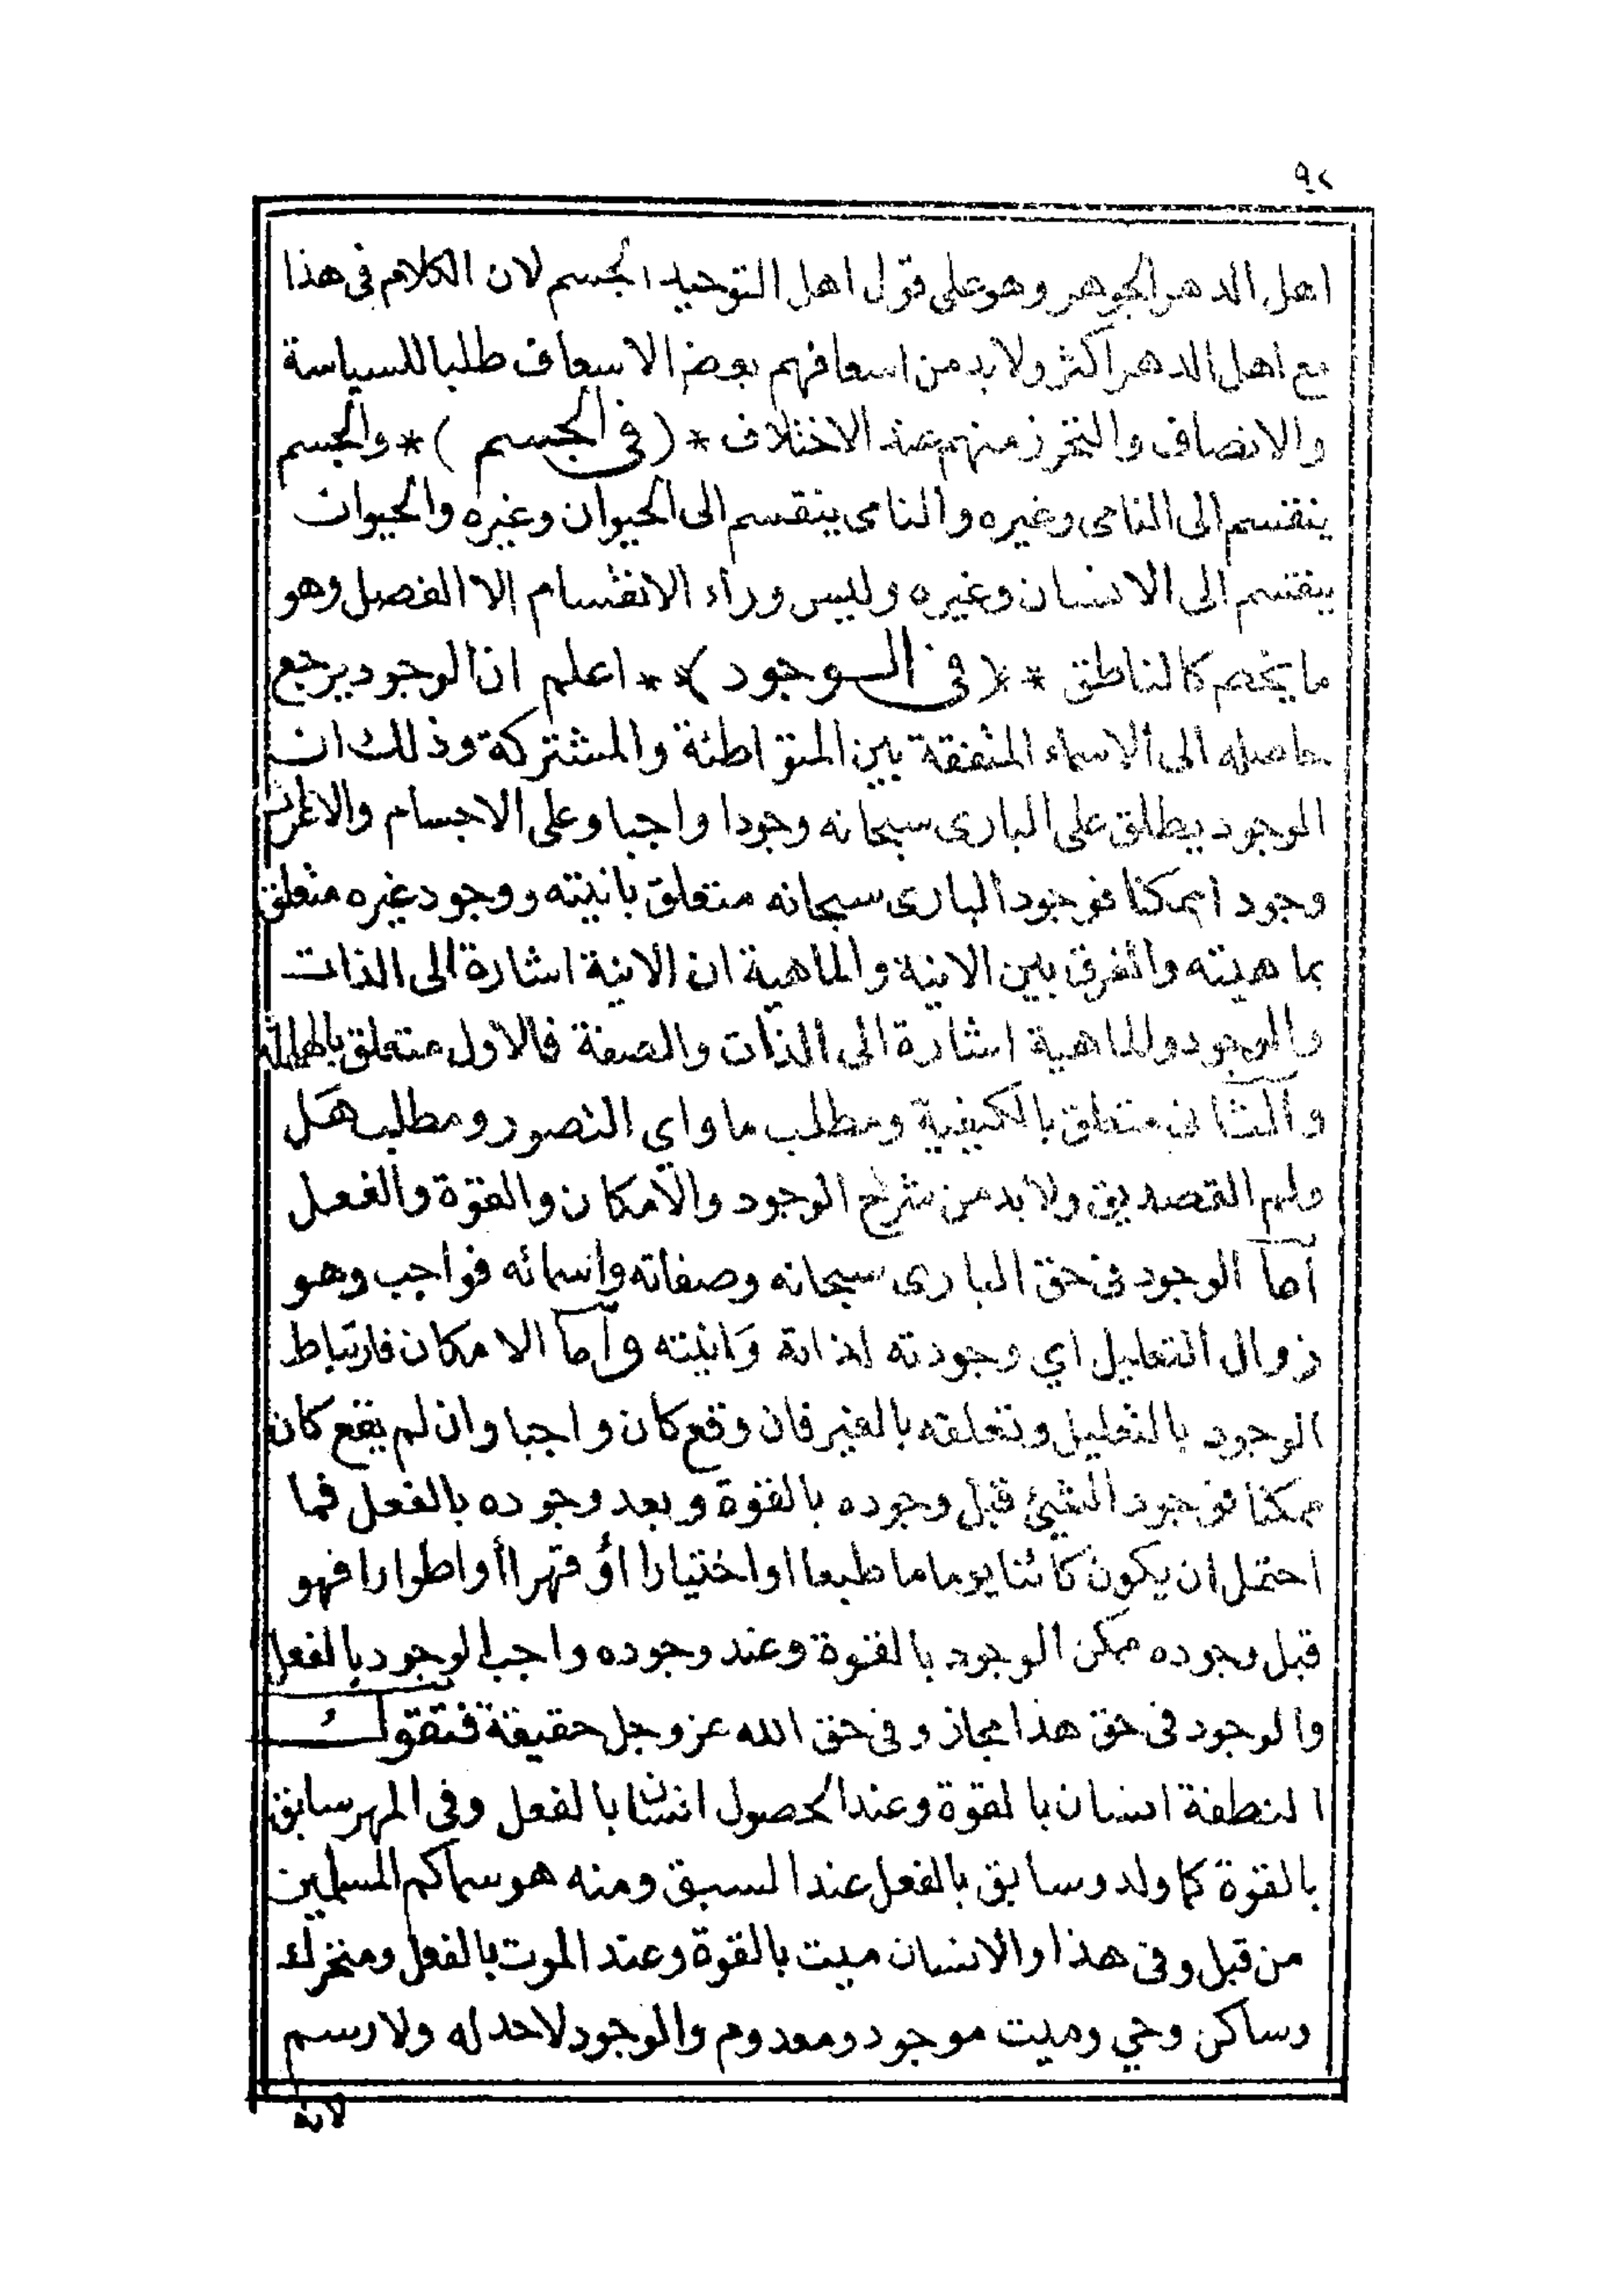 ٩٢
اهل الدهر الجوهر وهو على قول اهل التوحيد الجسم لان الكلام فى هذا
مع اهل الدهر اكثر ولا بد من اسعافهم بعض الاسعاف طلبا للسياسة
والانصاف والتحرز منهم عند الاختلاف * (فى الجسم) * والجسم
ينقسم الى النامى وغيره والنامى ينقسم الى الحيوان وغيره والحيوان
ينقسم الى الانسان وغيره وليس وراء الانقسام الا الفصل وهو
ما يخص كالناطق * * (فى الوجود) * * اعلم ان الوجود يرجع
حاصله الى الاسماء المتفقة بين المتواطئة والمشتركة وذلك ان
الوجود يطلق على البارى سبحانه وجودا واجبا وعلى الاجسام والاعراض
وجودا ممكنا فوجود البارى سبحانه متعلق بانيته ووجود غيره متعلق
بماهيته والفرق بين الانية والماهية ان الانية اشارة الى الذات
والوجود والماهية اشارة الى الذات والصفة فالاول متعلق بالهلية
والثانى متعلق بالكيفية ومطلب ما واى التصور ومطلب هل
ولم التصديق ولا بد من شرح الوجود والامكان والقوة والفعل
اما الوجود فى حق البارى سبحانه وصفاته واسمائه فواجب وهو
زوال التعليل اي وجودته لذاته وَانيته واما الامكان فارتباط
الوجود بالتعليل وتعلقه بالغير فان وقع كان واجبا وان لم يقع كان
ممكنا فوجود الشيئ قبل وجوده بالقوة وبعد وجوده بالفعل فما
احتمل ان يكون كائنا يوما ما طبعا او اختيارا أو قهرا أو اطوارا فهو
قبل وجوده ممكن الوجود بالقوة وعند وجوده واجب الوجود بالفعل
والوجود فى حق هذا مجاز وفى حق الله عز وجل حقيقة فتقول
النطفة انسان بالقوة وعند الحصول انسان بالفعل وفى المهر سابق
بالقوة كما ولد وسابق بالفعل عند السبق ومنه هو سماكم المسلمين
من قبل وفى هذا والانسان ميت بالقوة وعند الموت بالفعل ومتحرك
وساكن وحي وميت موجود ومعدوم والوجود لا حد له ولا رسم
لانه